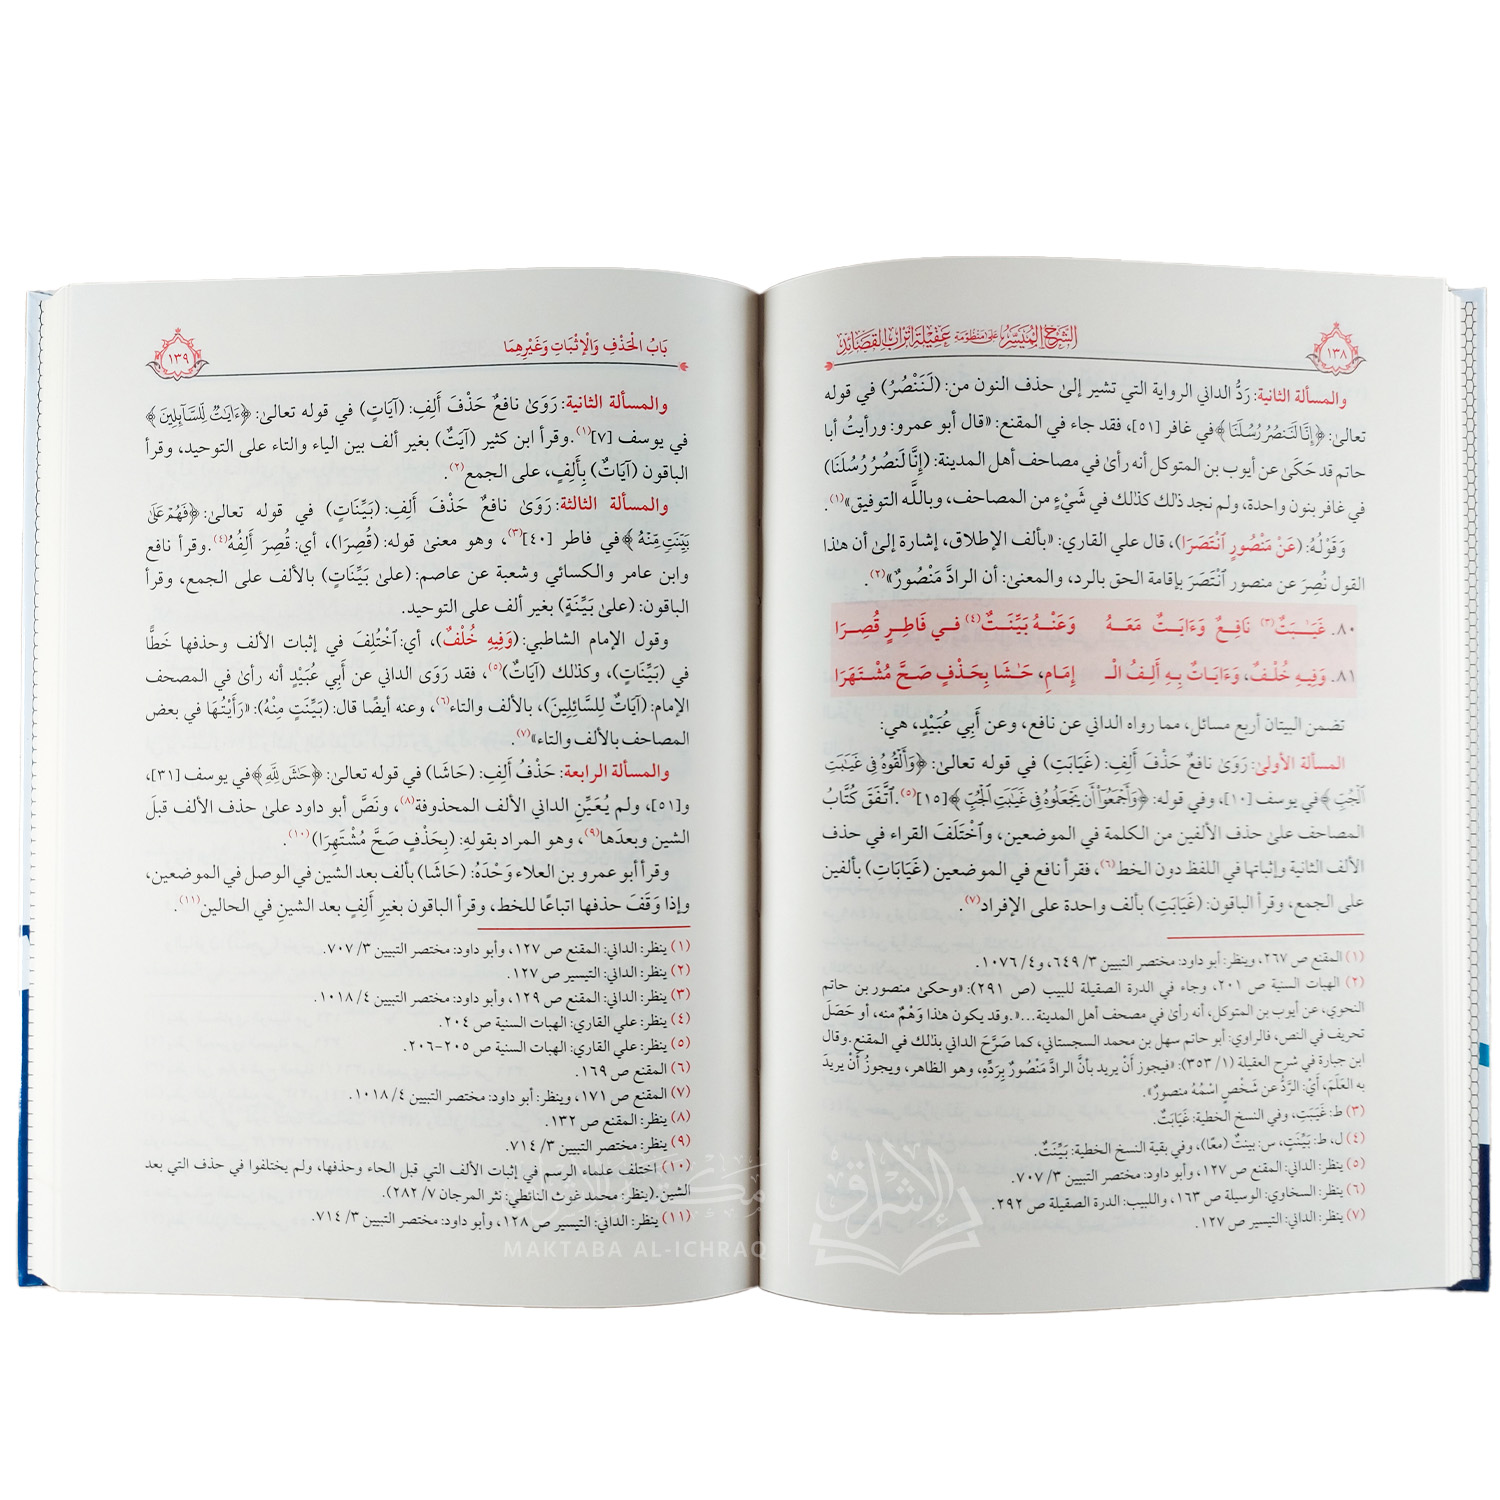 ١٣٨
الشرح الميسر على منظومة عقيلة أتراب القصائد
والمسألة الثانية: رَدُّ الداني الرواية التي تشير إلىٰ حذف النون من: (لَنَنْصُرُ) في قوله
تعالىٰ: ﴿إِنَّا لَنَنصُرُ رُسُلَنَا﴾ في غافر [٥١]، فقد جاء في المقنع: «قال أبو عمرو: ورأيتُ أبا
حاتم قد حَكَىٰ عن أيوب بن المتوكل أنه رأىٰ في مصاحف أهل المدينة: (إِنَّا لَنصُرُ رُسُلَنَا)
في غافر بنون واحدة، ولم نجد ذٰلك كذٰلك في شَيْءٍ من المصاحف، وباللَّه التوفيق»(١).
وَقَوْلُهُ: (عَنْ مَنْصُورٍ ٱنْتَصَرَا)، قال علي القاري: «بألف الإطلاق، إشارة إلىٰ أن هٰذا
القول نُصِرَ عن منصور ٱنْتَصَرَ بإقامة الحق بالرد، والمعنىٰ: أن الرادَّ مَنْصُورٌ»(٢).
٨٠. غَيَـٰبَتٌ(٣) نَافِعٌ وَءَايَـتٌ مَعَهُ وَعَنْهُ بَيِّنَـتٌ(٤) فِي فَاطِرٍ قُصِرَا
٨١. وَفِيهِ خُلْفٌ، وَءَايَاتٌ بِهِ أَلِفُ الْـ إِمَامِ، حَـٰشَا بِحَذْفٍ صَحَّ مُشْتَهَرَا
تضمن البيتان أربع مسائل، مما رواه الداني عن نافع، وعن أَبِي عُبَيْدٍ، هي:
المسألة الأولىٰ: رَوَىٰ نافعٌ حَذْفَ أَلِفِ: (غَيَابَتِ) في قوله تعالىٰ: ﴿وَأَلْقُوهُ فِي غَيَـٰبَتِ
ٱلْجُبِّ﴾ في يوسف [١٠]، وفي قوله: ﴿وَأَجْمَعُوٓا۟ أَن يَجْعَلُوهُ فِي غَيَـٰبَتِ ٱلْجُبِّ﴾ [١٥](٥). اتَّفَقَ كُتَّابُ
المصاحف علىٰ حذف الألفين من الكلمة في الموضعين، وٱخْتَلَفَ القراء في حذف
الألف الثانية وإثباتها في اللفظ دون الخط(٦)، فقرأ نافع في الموضعين (غَيَابَاتِ) بألفين
على الجمع، وقرأ الباقون: (غَيَابَتِ) بألف واحدة على الإفراد(٧).
(١) المقنع ص ٢٦٧، وينظر: أبو داود: مختصر التبيين ٣/ ٦٤٩، و٤/ ١٠٧٦.
(٢) الهبات السنية ص ٢٠١، وجاء في الدرة الصقيلة للبيب (ص ٢٩١): «وحكىٰ منصور بن حاتم
النحوي، عن أيوب بن المتوكل، أنه رأىٰ في مصحف أهل المدينة...». وقد يكون هٰذا وَهْمٌ منه، أو حَصَلَ
تحريف في النص، فالراوي: أبو حاتم سهل بن محمد السجستاني، كما صَرَّحَ الداني بذلك في المقنع. وقال
ابن جبارة في شرح العقيلة (١/ ٣٥٣): «فيجوز أَنْ يريد بأنَّ الرادَّ مَنْصُورٌ بِرَدِّهِ، وهو الظاهر، ويجوزُ أَنْ يريدَ
به العَلَمَ، أَيْ: الرَّدُّ عن شَخْصٍ اسْمُهُ منصورٌ».
(٣) ط: غَيَبَتِ، وفي النسخ الخطية: غَيَابَتٌ.
(٤) ل، ط: بَيِّنَتٍ، س: بينتٌ (معًا)، وفي بقية النسخ الخطية: بَيِّنَتٌ.
(٥) ينظر: الداني: المقنع ص ١٢٧، وأبو داود: مختصر التبيين ٣/ ٧٠٧.
(٦) ينظر: السخاوي: الوسيلة ص ١٦٣، واللبيب: الدرة الصقيلة ص ٢٩٢.
(٧) ينظر: الداني: التيسير ص ١٢٧.
بَابُ الْحَذْفِ وَالْإِثْبَاتِ وَغَيْرِهِمَا
١٣٩
والمسألة الثانية: رَوَىٰ نافعٌ حَذْفَ أَلِفِ: (آيَاتٍ) في قوله تعالىٰ: ﴿ءَايَـٰتٌ لِّلسَّآئِلِينَ﴾
في يوسف [٧](١). وقرأ ابن كثير (آيَتٌ) بغير ألف بين الياء والتاء على التوحيد، وقرأ
الباقون (آيَاتٌ) بِأَلِفٍ، على الجمع(٢).
والمسألة الثالثة: رَوَىٰ نافعٌ حَذْفَ أَلِفِ: (بَيِّنَاتٍ) في قوله تعالىٰ: ﴿فَهُمْ عَلَىٰ
بَيِّنَتٍ مِّنْهُ﴾ في فاطر [٤٠](٣)، وهو معنىٰ قوله: (قُصِرَا)، أي: قُصِرَ أَلِفُهُ(٤). وقرأ نافع
وابن عامر والكسائي وشعبة عن عاصم: (علىٰ بَيِّنَاتٍ) بالألف على الجمع، وقرأ
الباقون: (علىٰ بَيِّنَةٍ) بغير ألف على التوحيد.
وقول الإمام الشاطبي: (وَفِيهِ خُلْفٌ)، أي: ٱخْتُلِفَ في إثبات الألف وحذفها خَطًّا
في (بَيِّنَاتٍ)، وكذٰلك (آيَاتٌ)(٥)، فقد رَوَى الداني عن أَبِي عُبَيْدٍ أنه رأىٰ في المصحف
الإمام: (آيَاتٌ لِلسَّائِلِينَ)، بالألف والتاء(٦)، وعنه أيضًا قال: (بَيِّنَتٍ مِنْهُ): «رَأَيْتُهَا في بعض
المصاحف بالألف والتاء»(٧).
والمسألة الرابعة: حَذْفُ أَلِفِ: (حَاشَا) في قوله تعالىٰ: ﴿حَـٰشَ لِلَّهِ﴾ في يوسف [٣١]،
و[٥١]، ولم يُعَيِّنِ الداني الألف المحذوفة(٨)، ونَصَّ أبو داود علىٰ حذف الألف قبلَ
الشين وبعدَها(٩)، وهو المراد بقولهِ: (بِحَذْفٍ صَحَّ مُشْتَهِرَا)(١٠).
وقرأ أبو عمرو بن العلاء وَحْدَهُ: (حَاشَا) بألف بعد الشين في الوصل في الموضعين،
وإذا وَقَفَ حذفها اتباعًا للخط، وقرأ الباقون بغيرِ أَلِفٍ بعد الشينِ في الحالين(١١).
(١) ينظر: الداني: المقنع ص ١٢٧، وأبو داود: مختصر التبيين ٣/ ٧٠٧.
(٢) ينظر: الداني: التيسير ص ١٢٧.
(٣) ينظر: الداني: المقنع ص ١٢٩، وأبو داود: مختصر التبيين ٤/ ١٠١٨.
(٤) ينظر: علي القاري: الهبات السنية ص ٢٠٤.
(٥) ينظر: علي القاري: الهبات السنية ص ٢٠٥-٢٠٦.
(٦) المقنع ص ١٦٩.
(٧) المقنع ص ١٧١، وينظر: أبو داود: مختصر التبيين ٤/ ١٠١٨.
(٨) ينظر: المقنع ص ١٣٢.
(٩) ينظر: مختصر التبيين ٣/ ٧١٤.
(١٠) اختلف علماء الرسم في إثبات الألف التي قبل الحاء وحذفها، ولم يختلفوا في حذف التي بعد
الشين. (ينظر: محمد غوث النائطي: نثر المرجان ٧/ ٢٨٢).
(١١) ينظر: الداني: التيسير ص ١٢٨، وأبو داود: مختصر التبيين ٣/ ٧١٤.
مكتبة الإشراق
MAKTABA AL-ICHRAQ
الإشراق